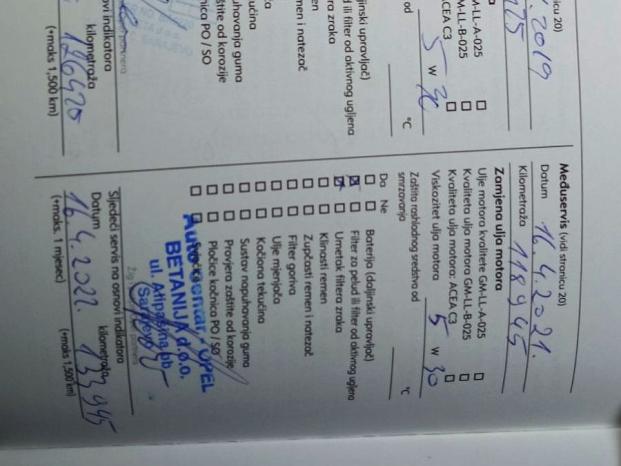 Međuservis (vidi stranicu 20)
Datum 16.4.2021.
Kilometraža 118945
Zamjena ulja motora
Ulje motora kvalitete GM-LL-A-025
Kvaliteta ulja motora GM-LL-B-025
Kvaliteta ulja motora: ACEA C3
Viskozitet ulja motora 5 W 30
Zaštita rashladnog sredstva od
smrzavanja °C
Da Ne
Baterija (daljinski upravljač)
Filter za pelud ili filter od aktivnog ugljena
Umetak filtera zraka
Klinasti remen
Zupčasti remen i natezač
Filter goriva
Ulje mjenjača
Kočiona tekućina
Sustav napuhavanja guma
Provjera zaštite od korozije
Pločice kočnica PO / SO
OPEL
BETANIJA d.o.o.
ul. Atipašina bb
Sarajevo
Sljedeći servis na osnovi indikatora
Datum kilometraža
16.4.2022. 133945
(+maks. 1 mjesec) (+maks 1,500 km)
nicu 20)
2019
M-LL-A-025
M-LL-B-025
ACEA C3
5 W 30
od
°C
ljinski upravljač)
d ili filter od aktivnog ugljena
ra zraka
en
men i natezač
ja
kućina
puhavanja guma
štite od korozije
nica PO / SO
ovi indikatora
kilometraža
126420
(+maks 1,500 km)